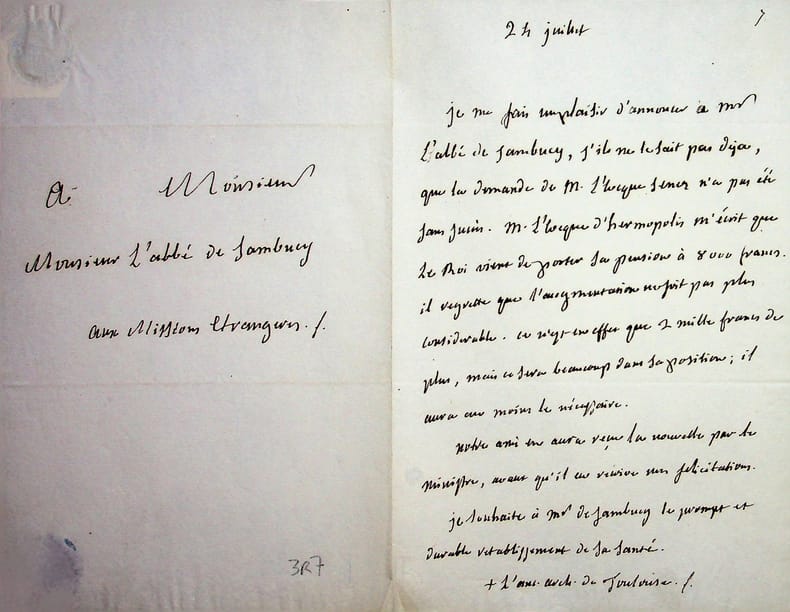 A Monsieur
Monsieur L'abbé de Sambucy
aux Missions Etrangeres.
3R7
7
24 juillet
je me fais un plaisir d'annoncer a mr
L'abbé de Sambucy, s'il ne le sait pas deja,
que la demande de M. L'Evêque Senez n'a pas été
sans succès. M. L'Evêque d'hermopolis m'écrit que
Le Roi vient de porter sa pension à 8000 francs.
il regrette que l'augmentation ne soit pas plus
considerable. ce n'est en effet que 2 mille francs de
plus, mais ce sera beaucoup dans sa position; il
aura au moins le nécessaire.
notre ami en aura reçu la nouvelle par le
ministre, avant qu'il en reçoive mes felicitations.
je souhaite à mr de Sambucy le prompt et
durable retablissement de sa santé.
+ L'anc. arch. de Toulouse.